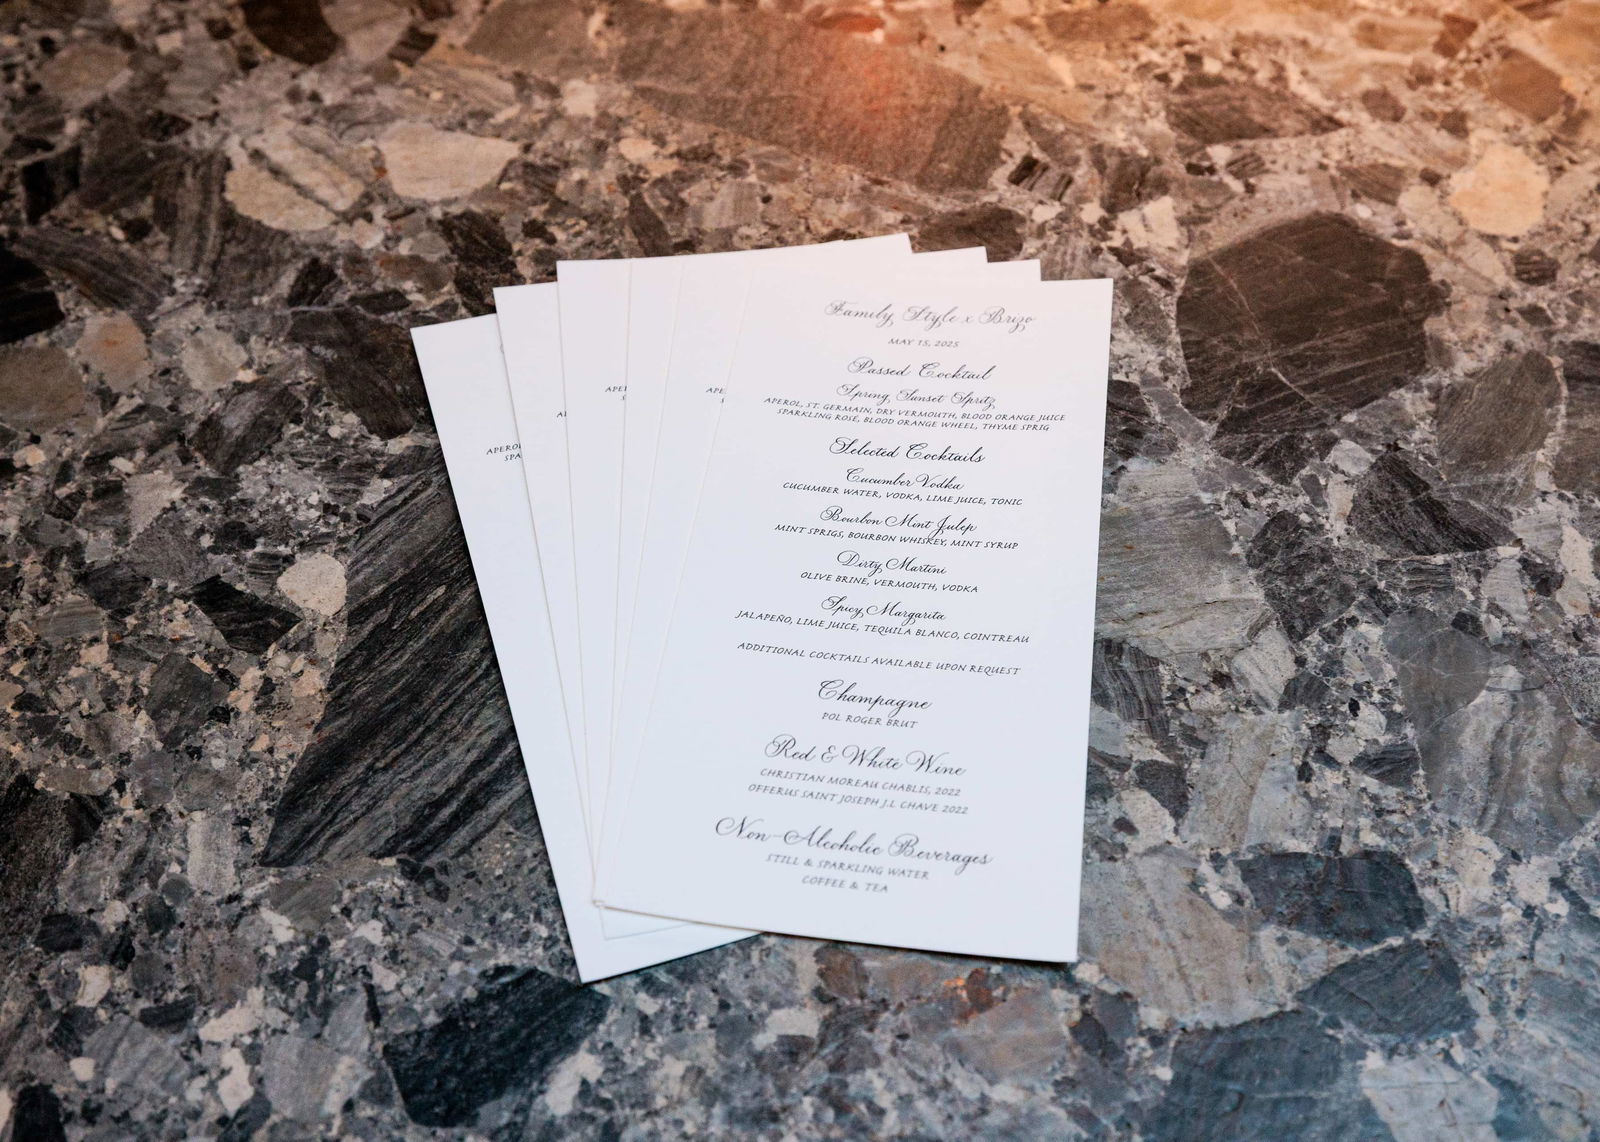 Family Style x Brizo
MAY 15, 2025
Passed Cocktail
Spring Sunset Spritz
APEROL, ST. GERMAIN, DRY VERMOUTH, BLOOD ORANGE JUICE
SPARKLING ROSE, BLOOD ORANGE WHEEL, THYME SPRIG
Selected Cocktails
Cucumber Vodka
CUCUMBER WATER, VODKA, LIME JUICE, TONIC
Bourbon Mint Julep
MINT SPRIGS, BOURBON WHISKEY, MINT SYRUP
Dirty Martini
OLIVE BRINE, VERMOUTH, VODKA
Spicy Margarita
JALAPEÑO, LIME JUICE, TEQUILA BLANCO, COINTREAU
ADDITIONAL COCKTAILS AVAILABLE UPON REQUEST
Champagne
POL ROGER BRUT
Red & White Wine
CHRISTIAN MOREAU CHABLIS, 2022
OFFERUS SAINT JOSEPH J.L CHAVE 2022
Non-Alcoholic Beverages
STILL & SPARKLING WATER
COFFEE & TEA